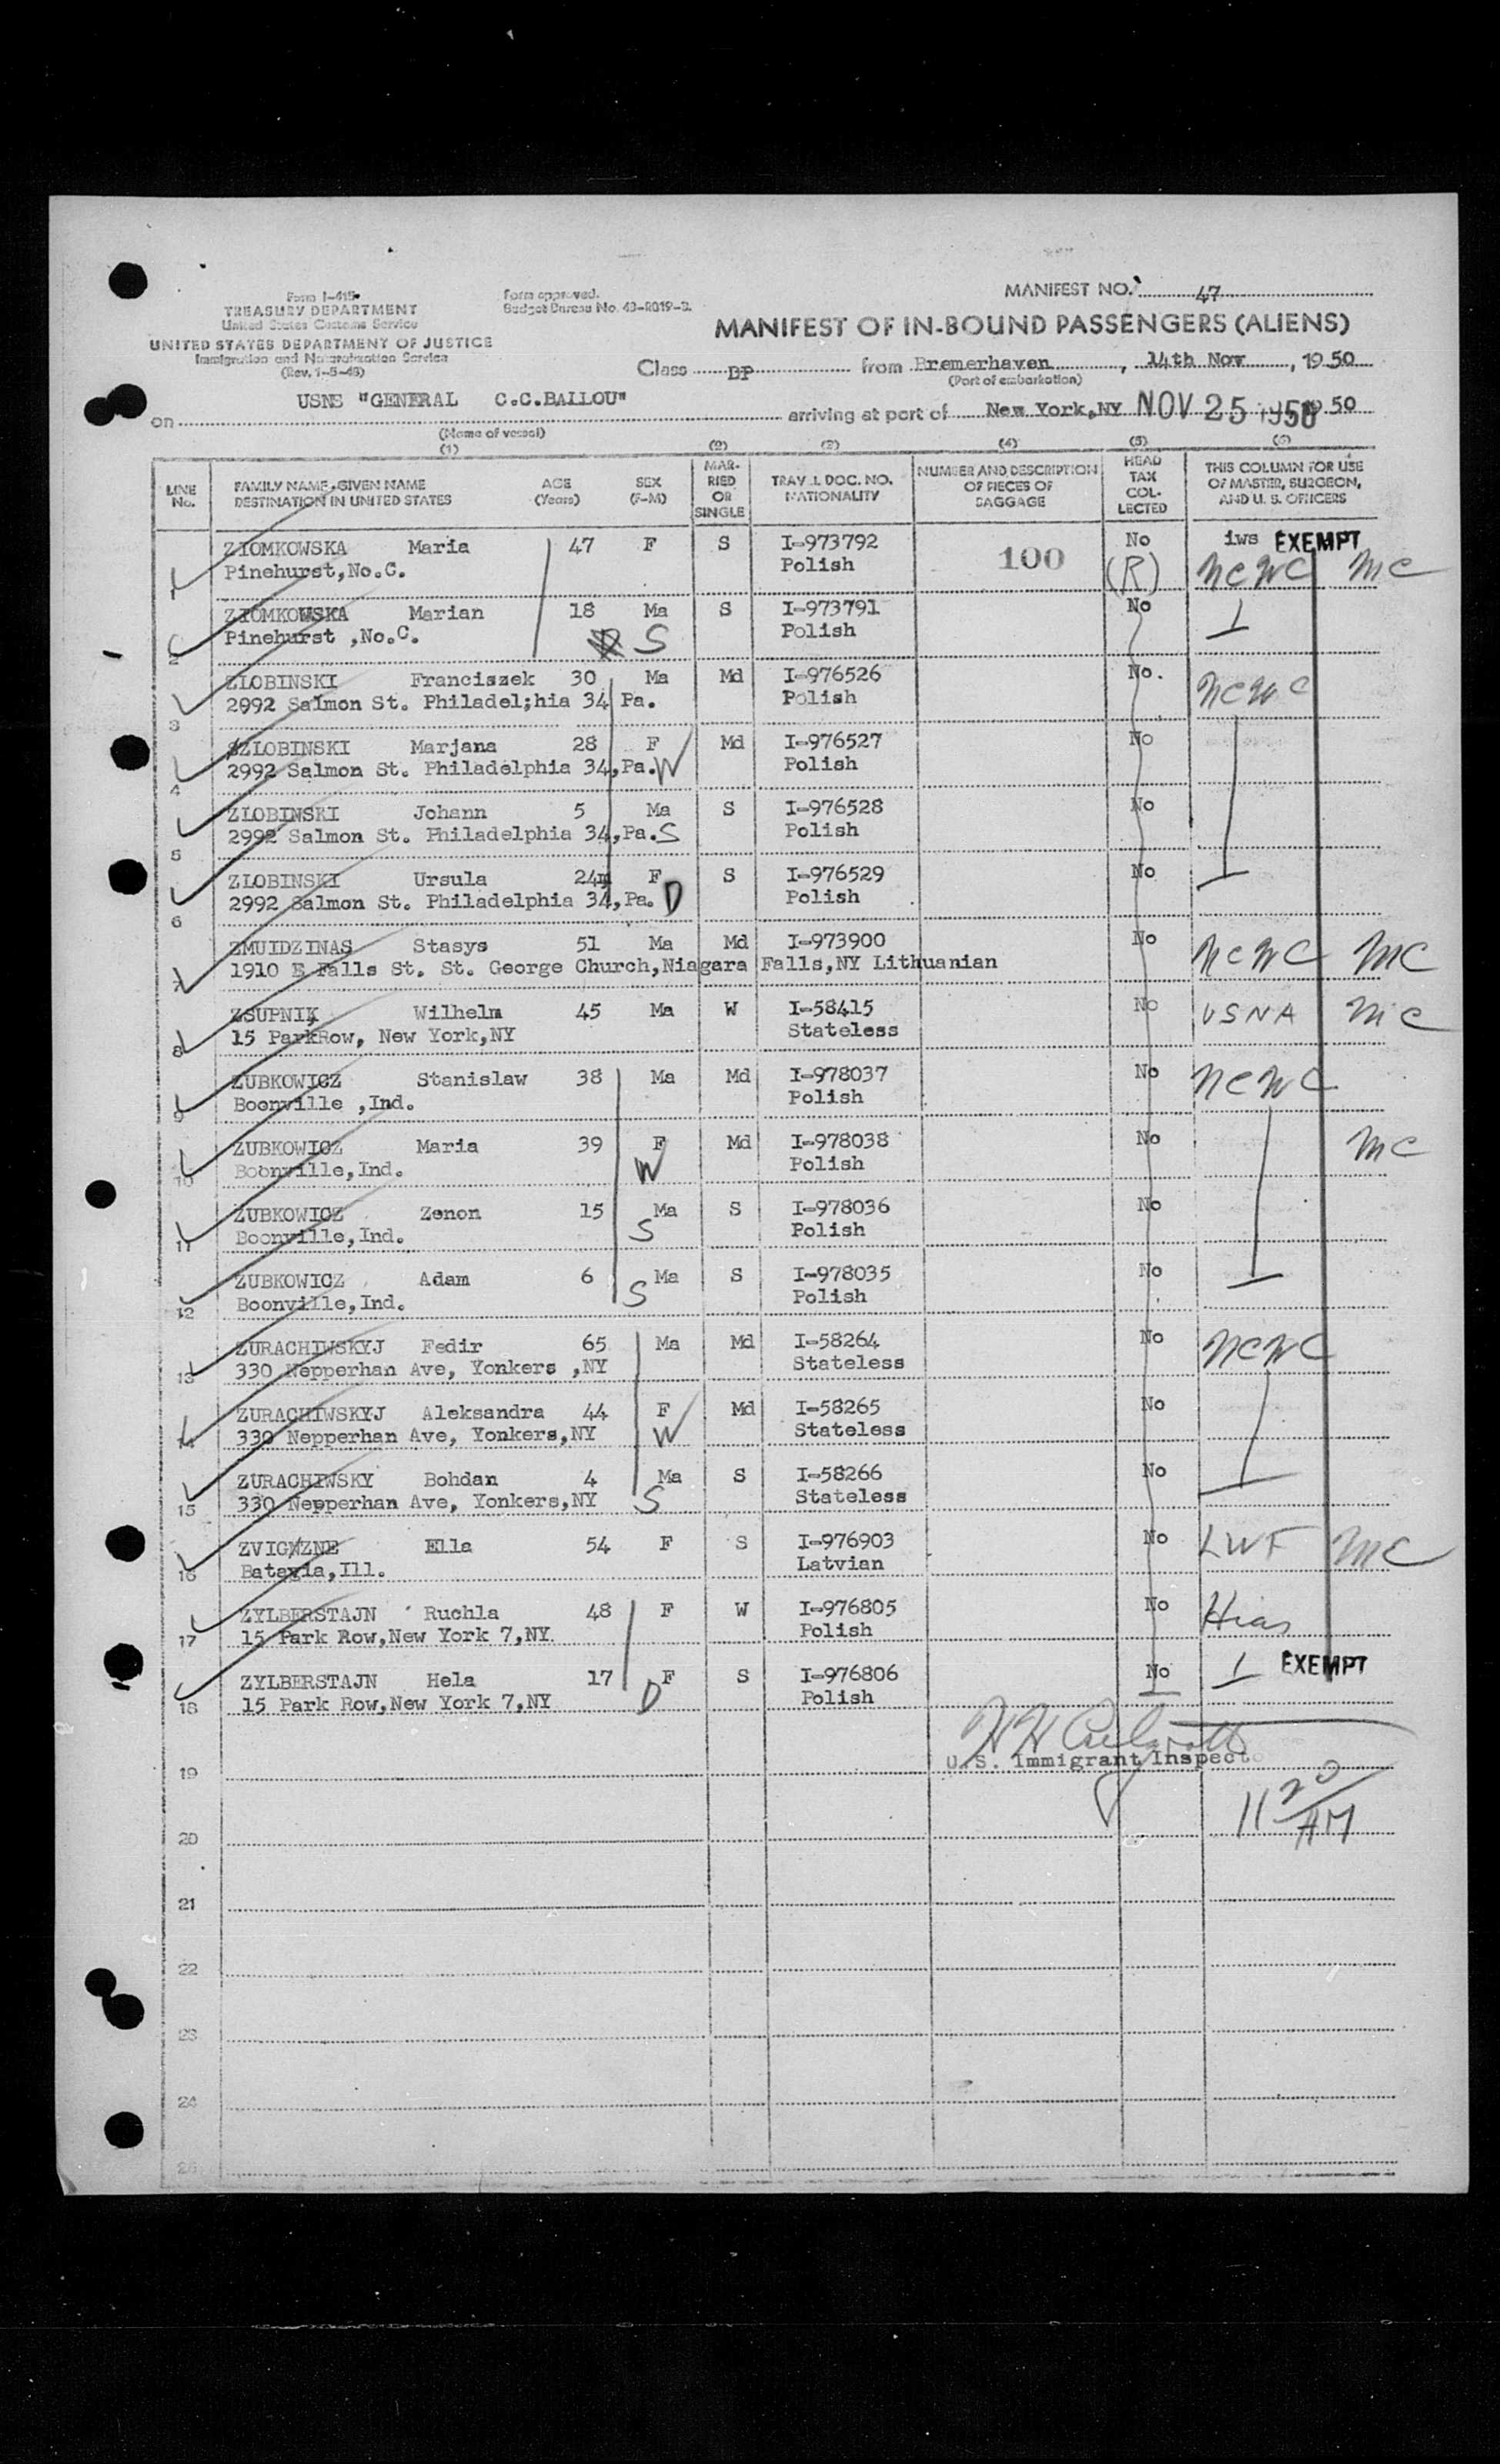 MANIFEST NO. 47
Form I-415
TREASURY DEPARTMENT
United States Customs Service
UNITED STATES DEPARTMENT OF JUSTICE
Immigration and Naturalization Service
(Rev. 1-5-45)
Form approved.
Budget Bureau No. 43-R019-2.
MANIFEST OF IN-BOUND PASSENGERS (ALIENS)
Class DP from Bremerhaven, 14th Nov, 1950
(Port of embarkation)
on USNS "GENERAL C.C.BALLOU" arriving at port of New York,NY NOV 25 1950 50
(Name of vessel)
(1) (2) (3) (4) (5) (6)
LINE No. FAMILY NAME-GIVEN NAME DESTINATION IN UNITED STATES AGE (Years) SEX (F-M) MARRIED OR SINGLE TRAVEL DOC. NO. NATIONALITY NUMBER AND DESCRIPTION OF PIECES OF BAGGAGE HEAD TAX COLLECTED THIS COLUMN FOR USE OF MASTER, SURGEON, AND U. S. OFFICERS
1 ZIOMKOWSKA Maria 47 F S I-973792 100 No iws EXEMPT
Pinehurst,No.C. Polish (R) NCWC MC
2 ZIOMKOWSKA Marian 18 Ma S I-973791 No
Pinehurst ,No.C. S Polish
3 ZLOBINSKI Franciszek 30 Ma Md I-976526 No.
2992 Salmon St. Philadel;hia 34 Pa. Polish NCWC
4 ZLOBINSKI Marjana 28 F Md I-976527 No
2992 Salmon St. Philadelphia 34,Pa. W Polish
5 ZLOBINSKI Johann 5 Ma S I-976528 No
2992 Salmon St. Philadelphia 34,Pa. S Polish
6 ZLOBINSKI Ursula 24m F S I-976529 No
2992 Salmon St. Philadelphia 34,Pa. D Polish
7 ZMUIDZINAS Stasys 51 Ma Md I-973900 No NCWC MC
1910 E Falls St. St. George Church,Niagara Falls,NY Lithuanian
8 ZSUPNIK Wilhelm 45 Ma W I-58415 No USNA MC
15 ParkRow, New York,NY Stateless
9 ZUBKOWICZ Stanislaw 38 Ma Md I-978037 No NCWC
Boonville ,Ind. Polish
10 ZUBKOWICZ Maria 39 F Md I-978038 No MC
Boonville,Ind. W Polish
11 ZUBKOWICZ Zenon 15 Ma S I-978036 No
Boonville,Ind. S Polish
12 ZUBKOWICZ Adam 6 Ma S I-978035 No
Boonville,Ind. S Polish
13 ZURACHIWSKYJ Fedir 65 Ma Md I-58264 No NCWC
330 Nepperhan Ave, Yonkers ,NY Stateless
14 ZURACHIWSKYJ Aleksandra 44 F Md I-58265 No
330 Nepperhan Ave, Yonkers,NY W Stateless
15 ZURACHIWSKY Bohdan 4 Ma S I-58266 No
330 Nepperhan Ave, Yonkers,NY S Stateless
16 Ella 54 F S I-976903 No LWF MC
Batavia,Ill. Latvian
17 ZYLBERSTAJN Ruchla 48 F W I-976805 No Hias
15 Park Row,New York 7,NY. Polish
18 ZYLBERSTAJN Hela 17 F S I-976806 No EXEMPT
15 Park Row,New York 7,NY D Polish
U.S. Immigrant Inspecto
19
11 20 AM
20
21
22
23
24
25